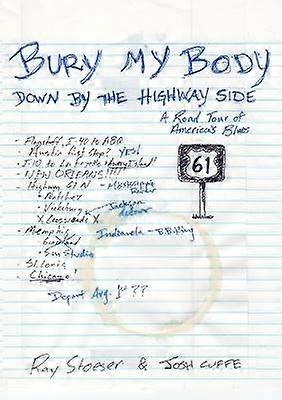 BURY MY BODY
DOWN BY THE HIGHWAY SIDE
A Road Tour of
America's Blues
- Flagstaff, I-40 to ABQ
Austin first stop? YES!
- I-10 to Lafayette
- NEW ORLEANS!!!!
- Highway 61 N - Mississippi
River
- Natchez
- Vicksburg - Jackson
detour
X Crossroads X
- Memphis Indianola - B.B. King
- Graceland
- Sun Studio
- St. Louis
- Chicago!
Depart Aug. 1st ??
61
Ray Stoeser & Josh Cuffe